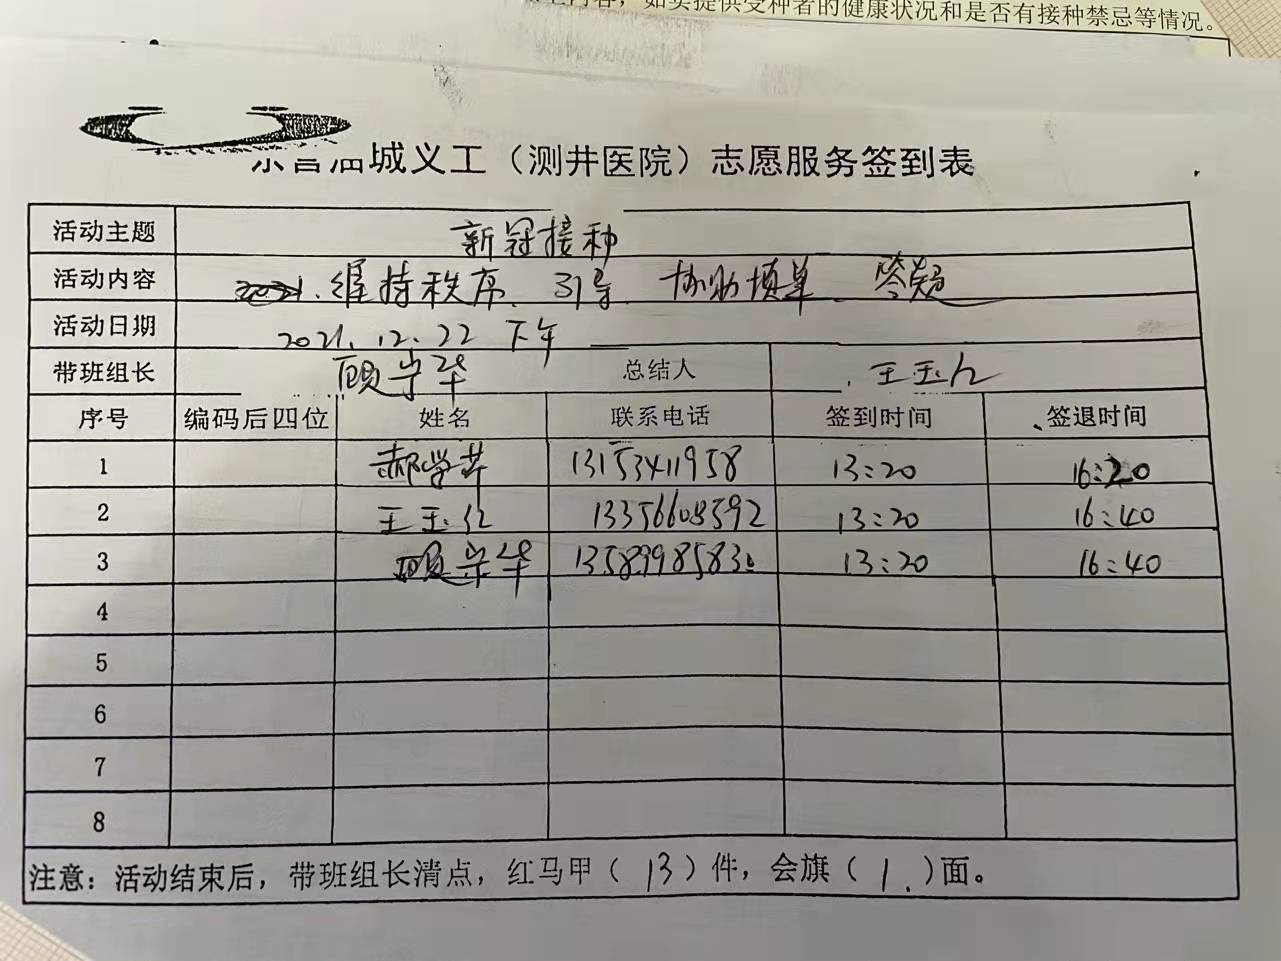 如实提供受种者的健康状况和是否有接种禁忌等情况。
东营油城义工（测井医院）志愿服务签到表
活动主题 新冠接种
活动内容 维持秩序、引导 协助填单、答疑
活动日期 2021.12.22 下午
带班组长 顾宗华 总结人 王玉仁
序号 编码后四位 姓名 联系电话 签到时间 签退时间
1 郝学芹 13153411958 13:20 16:20
2 王玉仁 13356608592 13:20 16:40
3 顾宗华 13:20 16:40
4
5
6
7
8
注意：活动结束后，带班组长清点，红马甲（13）件，会旗（1.）面。